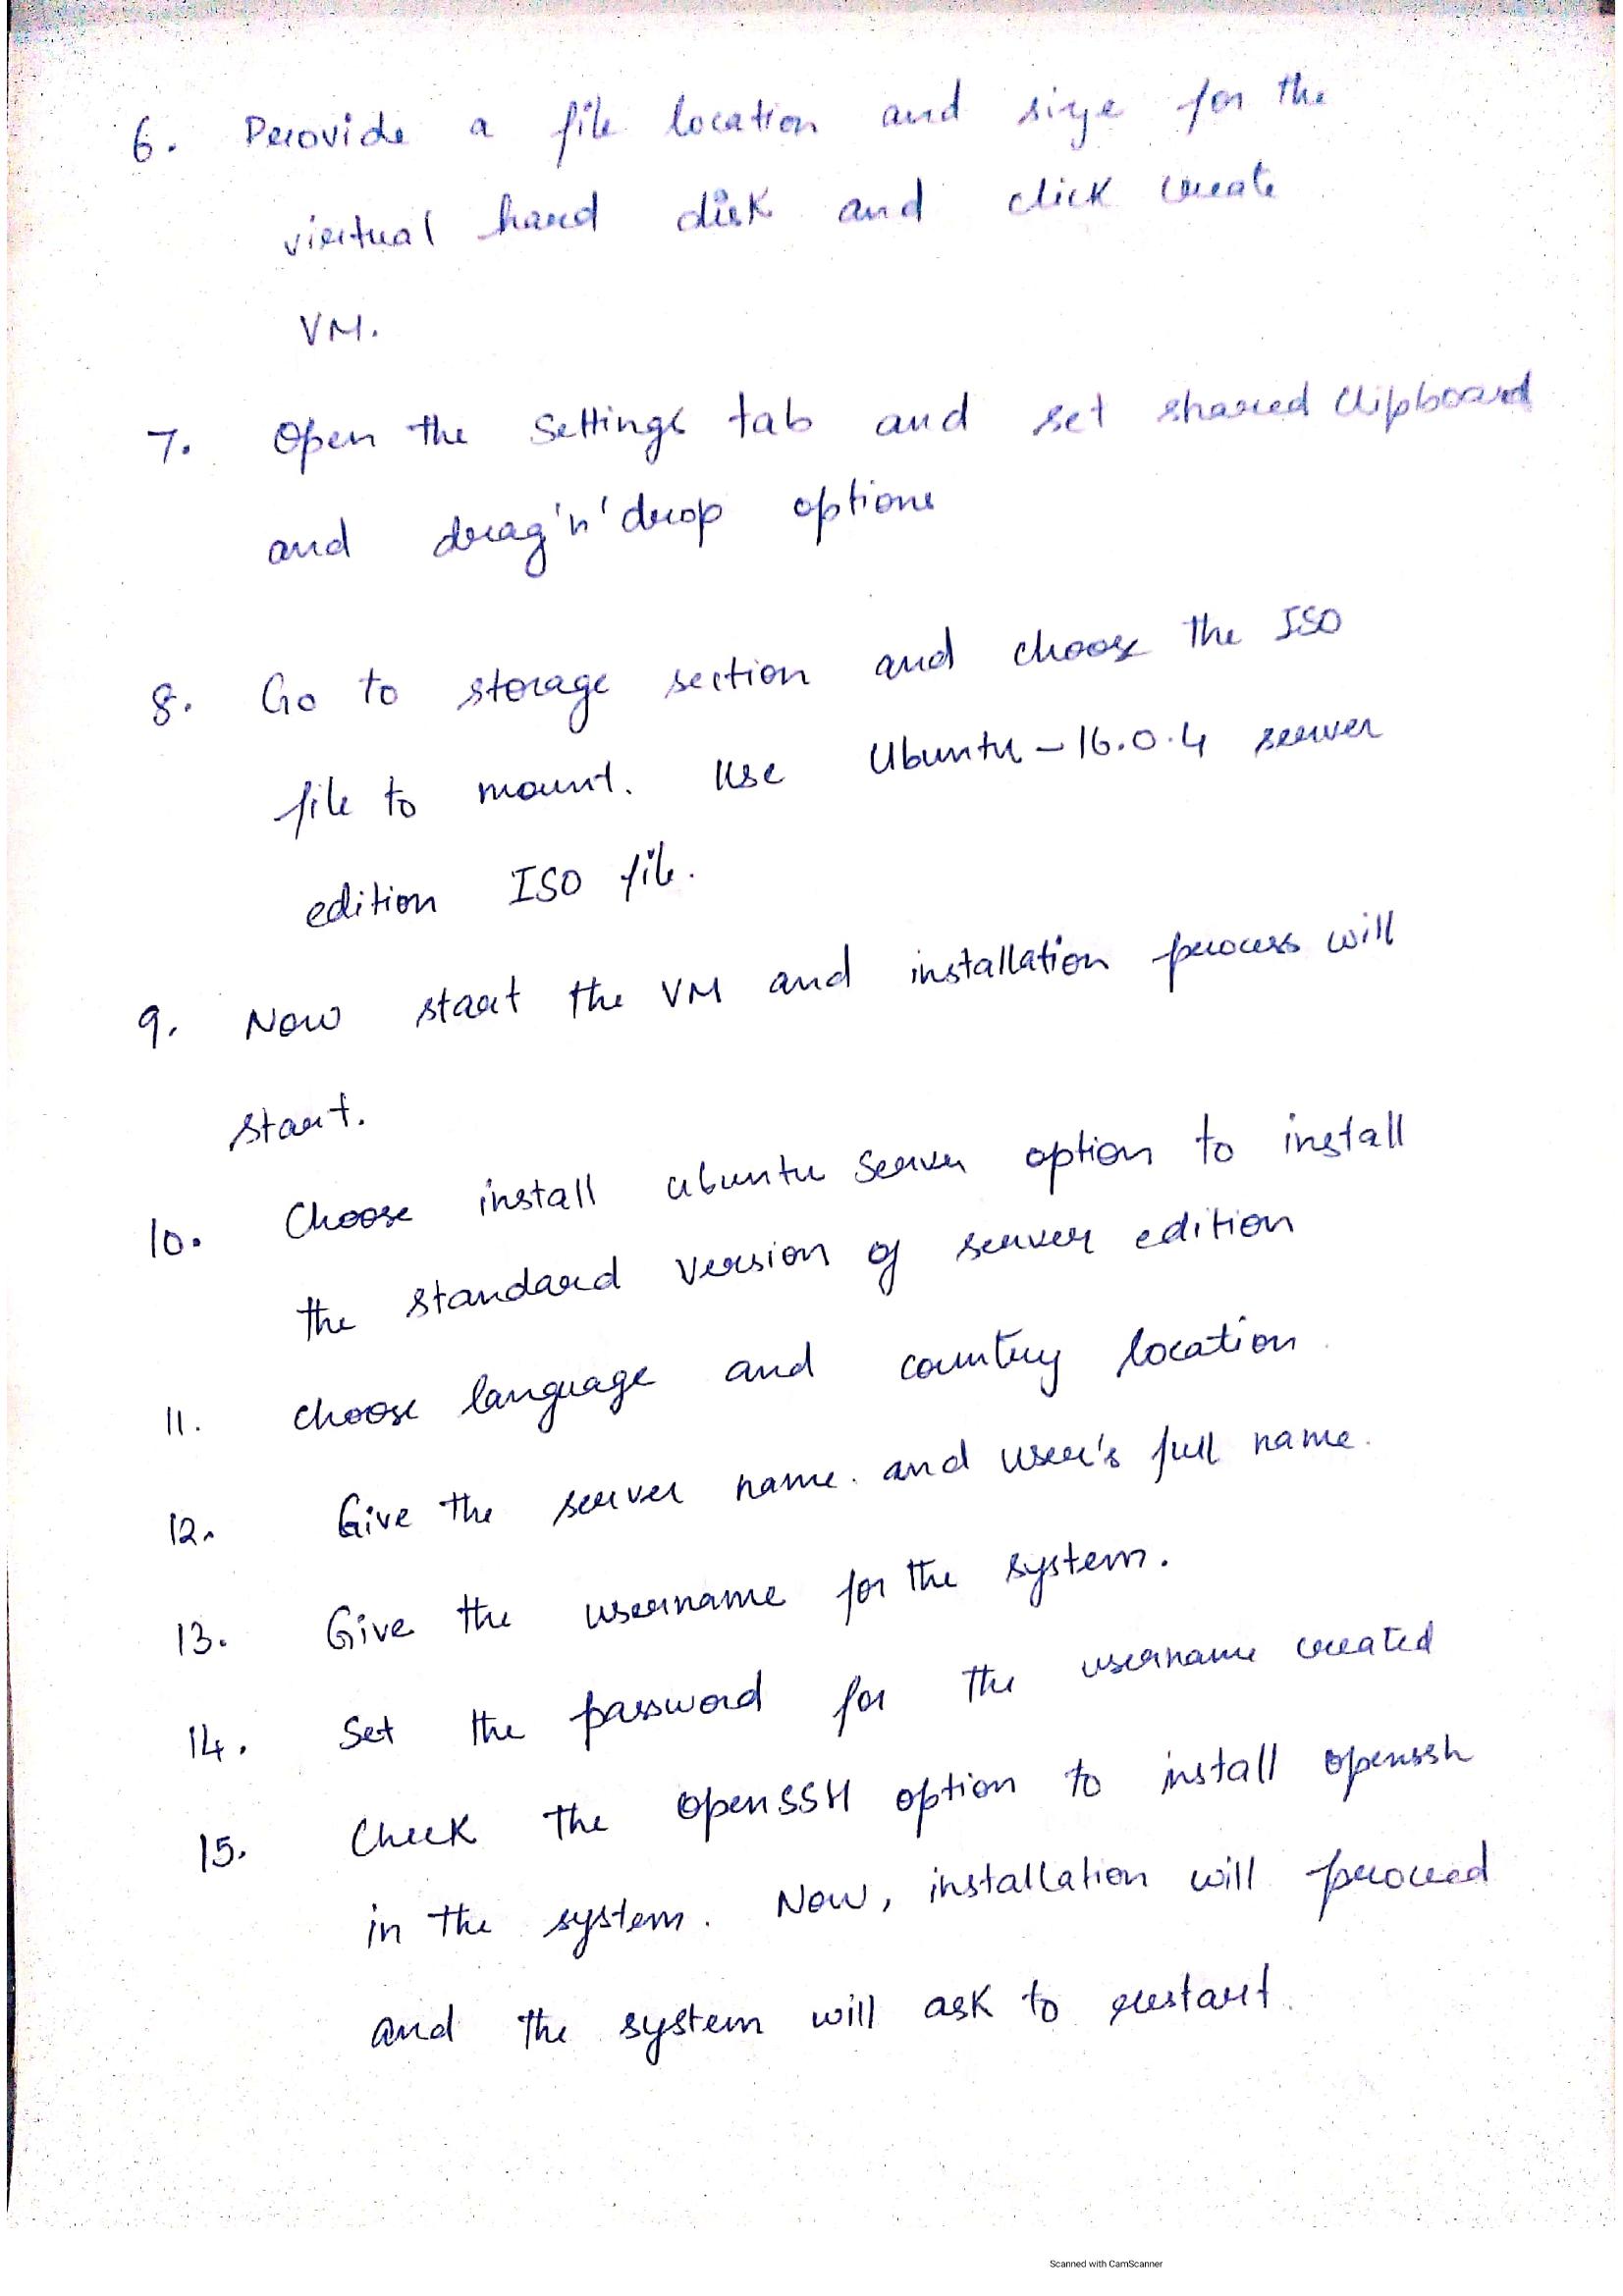 6. Provide a file location and size for the
virtual hard disk and click create
VM.
7. Open the Settings tab and set shared clipboard
and drag'n'drop options
8. Go to storage section and choose the ISO
file to mount. Use Ubuntu - 16.0.4 server
edition ISO file.
9. Now start the VM and installation process will
start.
10. Choose install ubuntu Server option to install
the standard version of server edition
11. choose language and country location.
12. Give the server name. and user's full name.
13. Give the username for the system.
14. Set the password for the username created
15. Check the OpenSSH option to install openssh
in the system. Now, installation will proceed
and the system will ask to restart.
Scanned with CamScanner